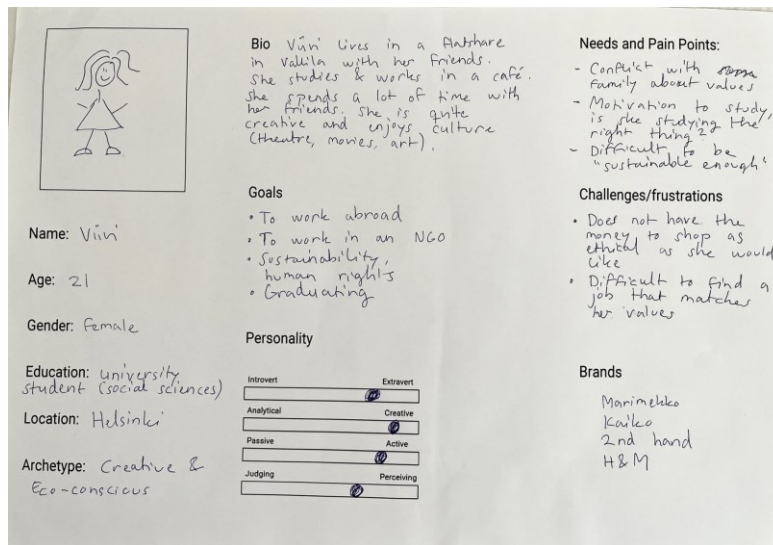 Name: Viivi
Age: 21
Gender: Female
Education: university
student (social sciences)
Location: Helsinki
Archetype: Creative &
Eco-conscious
Bio Viivi lives in a flatshare
in Vallila with her friends.
She studies & works in a café.
She spends a lot of time with
her friends. She is quite
creative and enjoys culture
(theatre, movies, art).
Goals
• To work abroad
• To work in an NGO
• Sustainability,
human rights
• Graduating
Personality
Introvert Extravert
Analytical Creative
Passive Active
Judging Perceiving
Needs and Pain Points:
- Conflict with
family about values
- Motivation to study,
is she studying the
right thing?
- Difficult to be
"sustainable enough"
Challenges/frustrations
• Does not have the
money to shop as
ethical as she would
like
• Difficult to find a
job that matches
her values
Brands
Marimekko
Kaiko
2nd hand
H&M